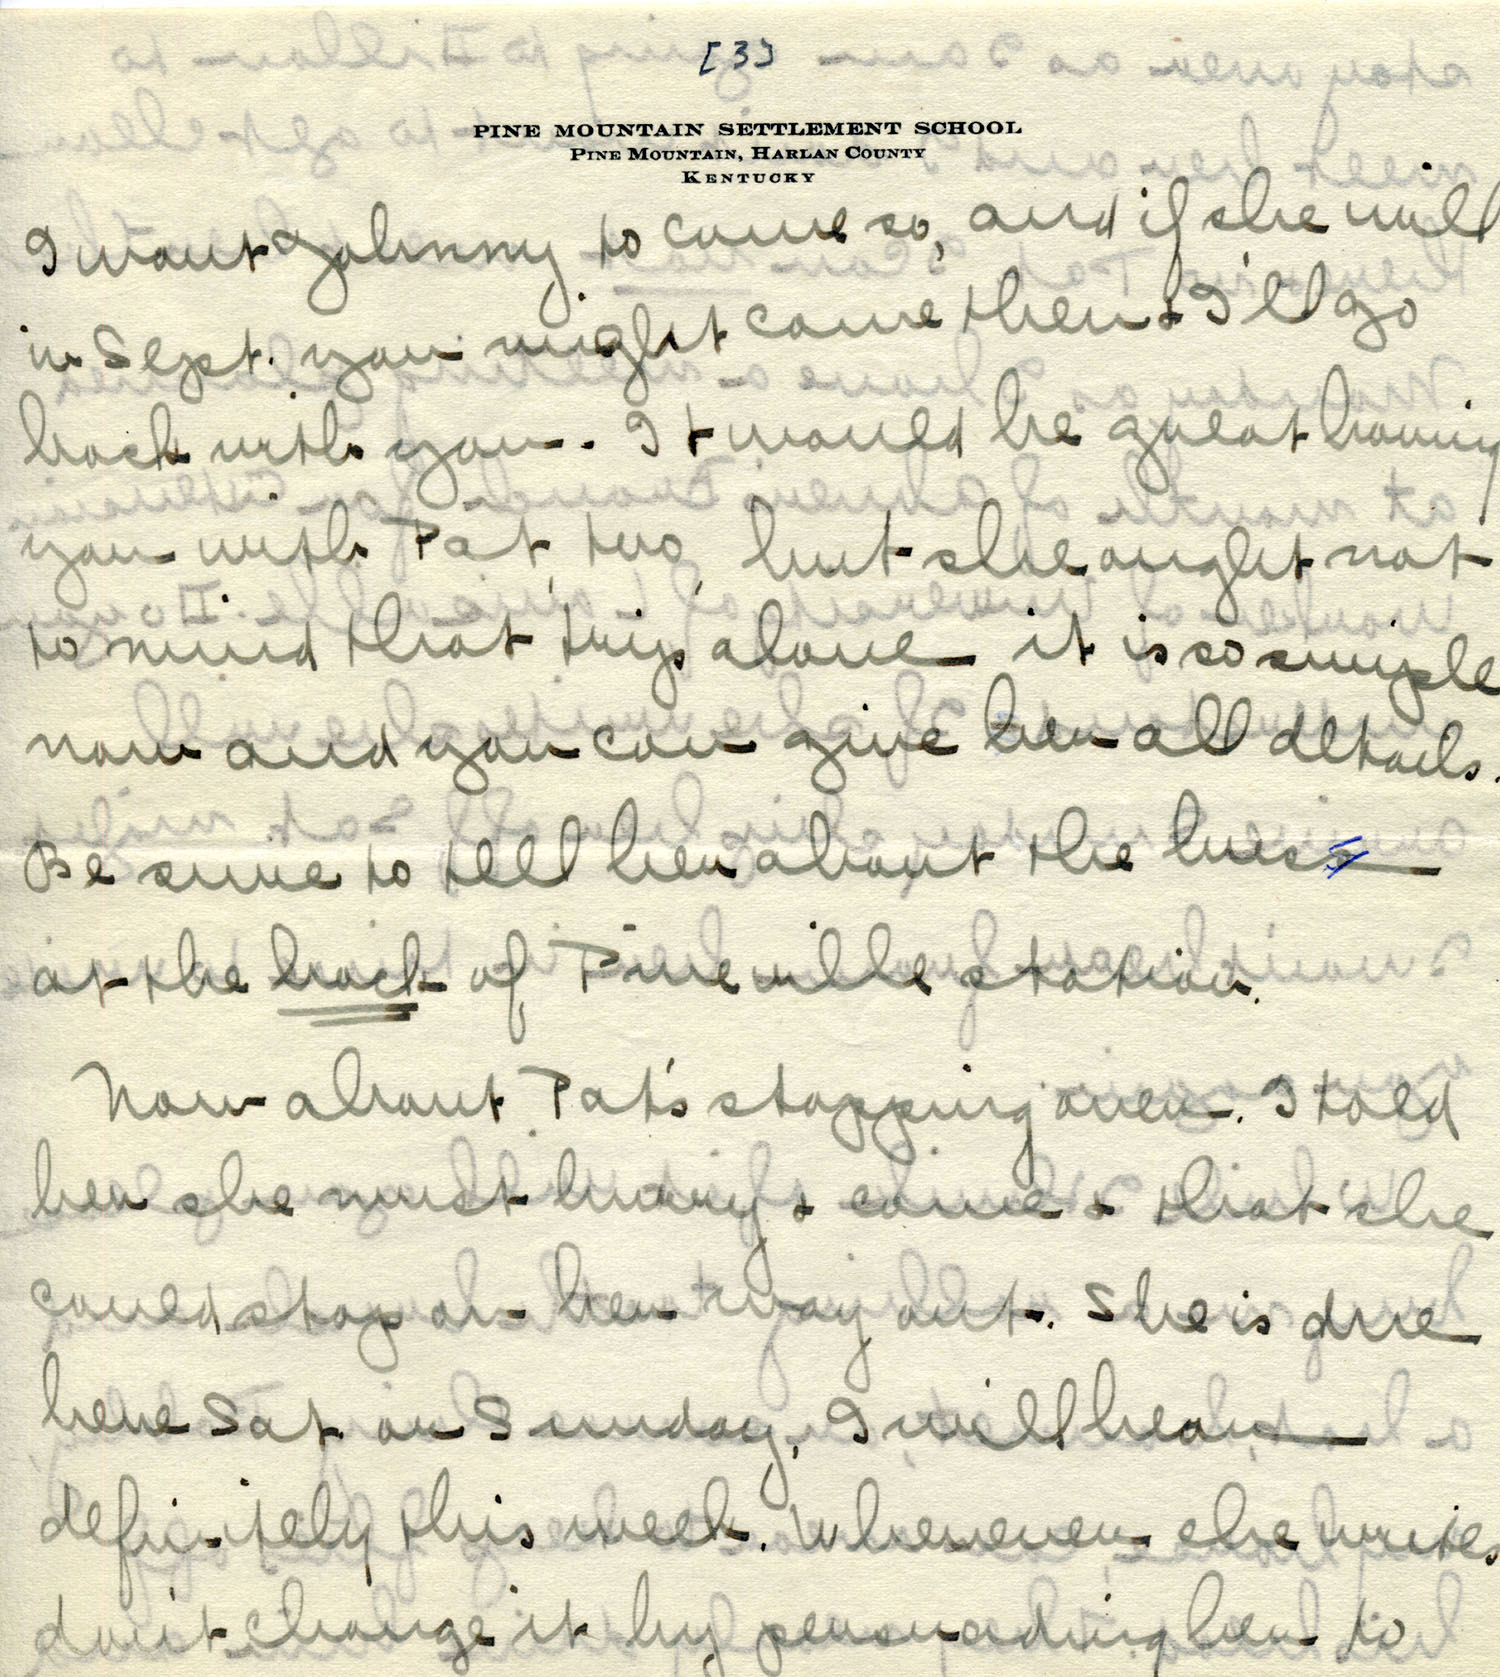 [3]
PINE MOUNTAIN SETTLEMENT SCHOOL
PINE MOUNTAIN, HARLAN COUNTY
KENTUCKY
I want Johnny to come so, and if she will
in Sept. you might come then & I'll go
back with you. It would be great having
you with Pat, too, but she ought not
to mind that trip alone it is so simple
now and you can give her all details.
Be sure to tell her about the bus
at the back of Pineville station.
Now about Pat's stopping over. I told
her she must hurry & come & that she
could stop on her way out. She is due
here Sat or Sunday, I will hear
definitely this week. Whenever she writes
don't change it by persuading her to